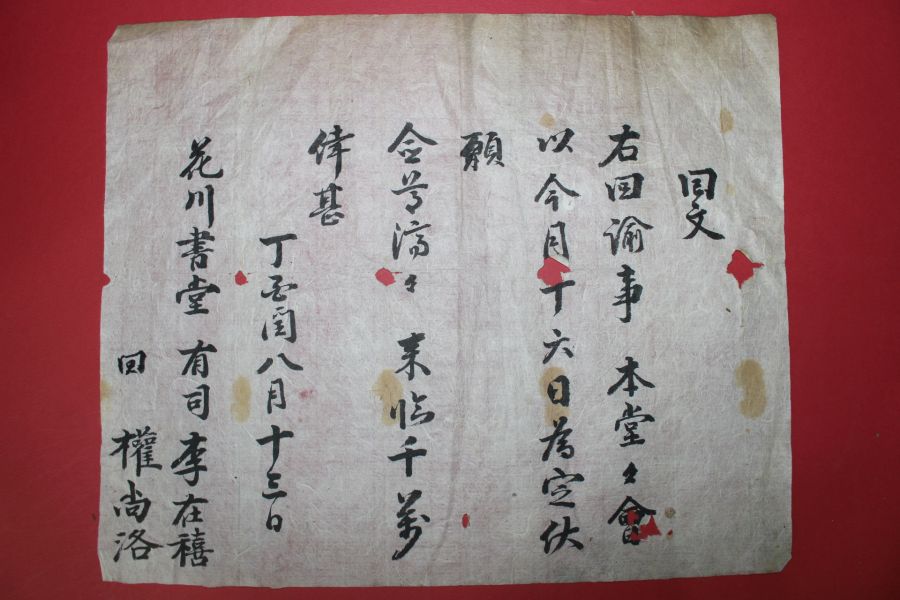 回文
右回諭事 本堂々會
以今月十六日為定伏
願
僉尊濟々 来臨千萬
偉甚
丁酉閏八月十三日
花川書堂 有司李在禧
回 權尚洛